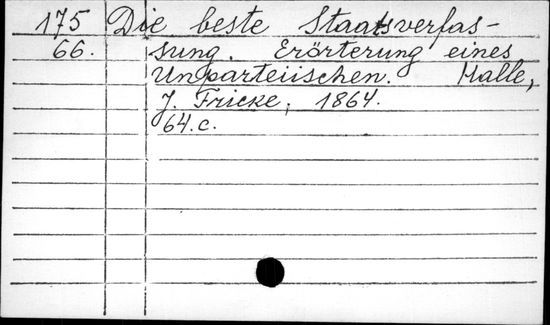 175 Die beste Staatsverfas-
66. sung. Erörterung eines
Unparteiischen. Halle,
J. Fricke, 1864.
64.c.